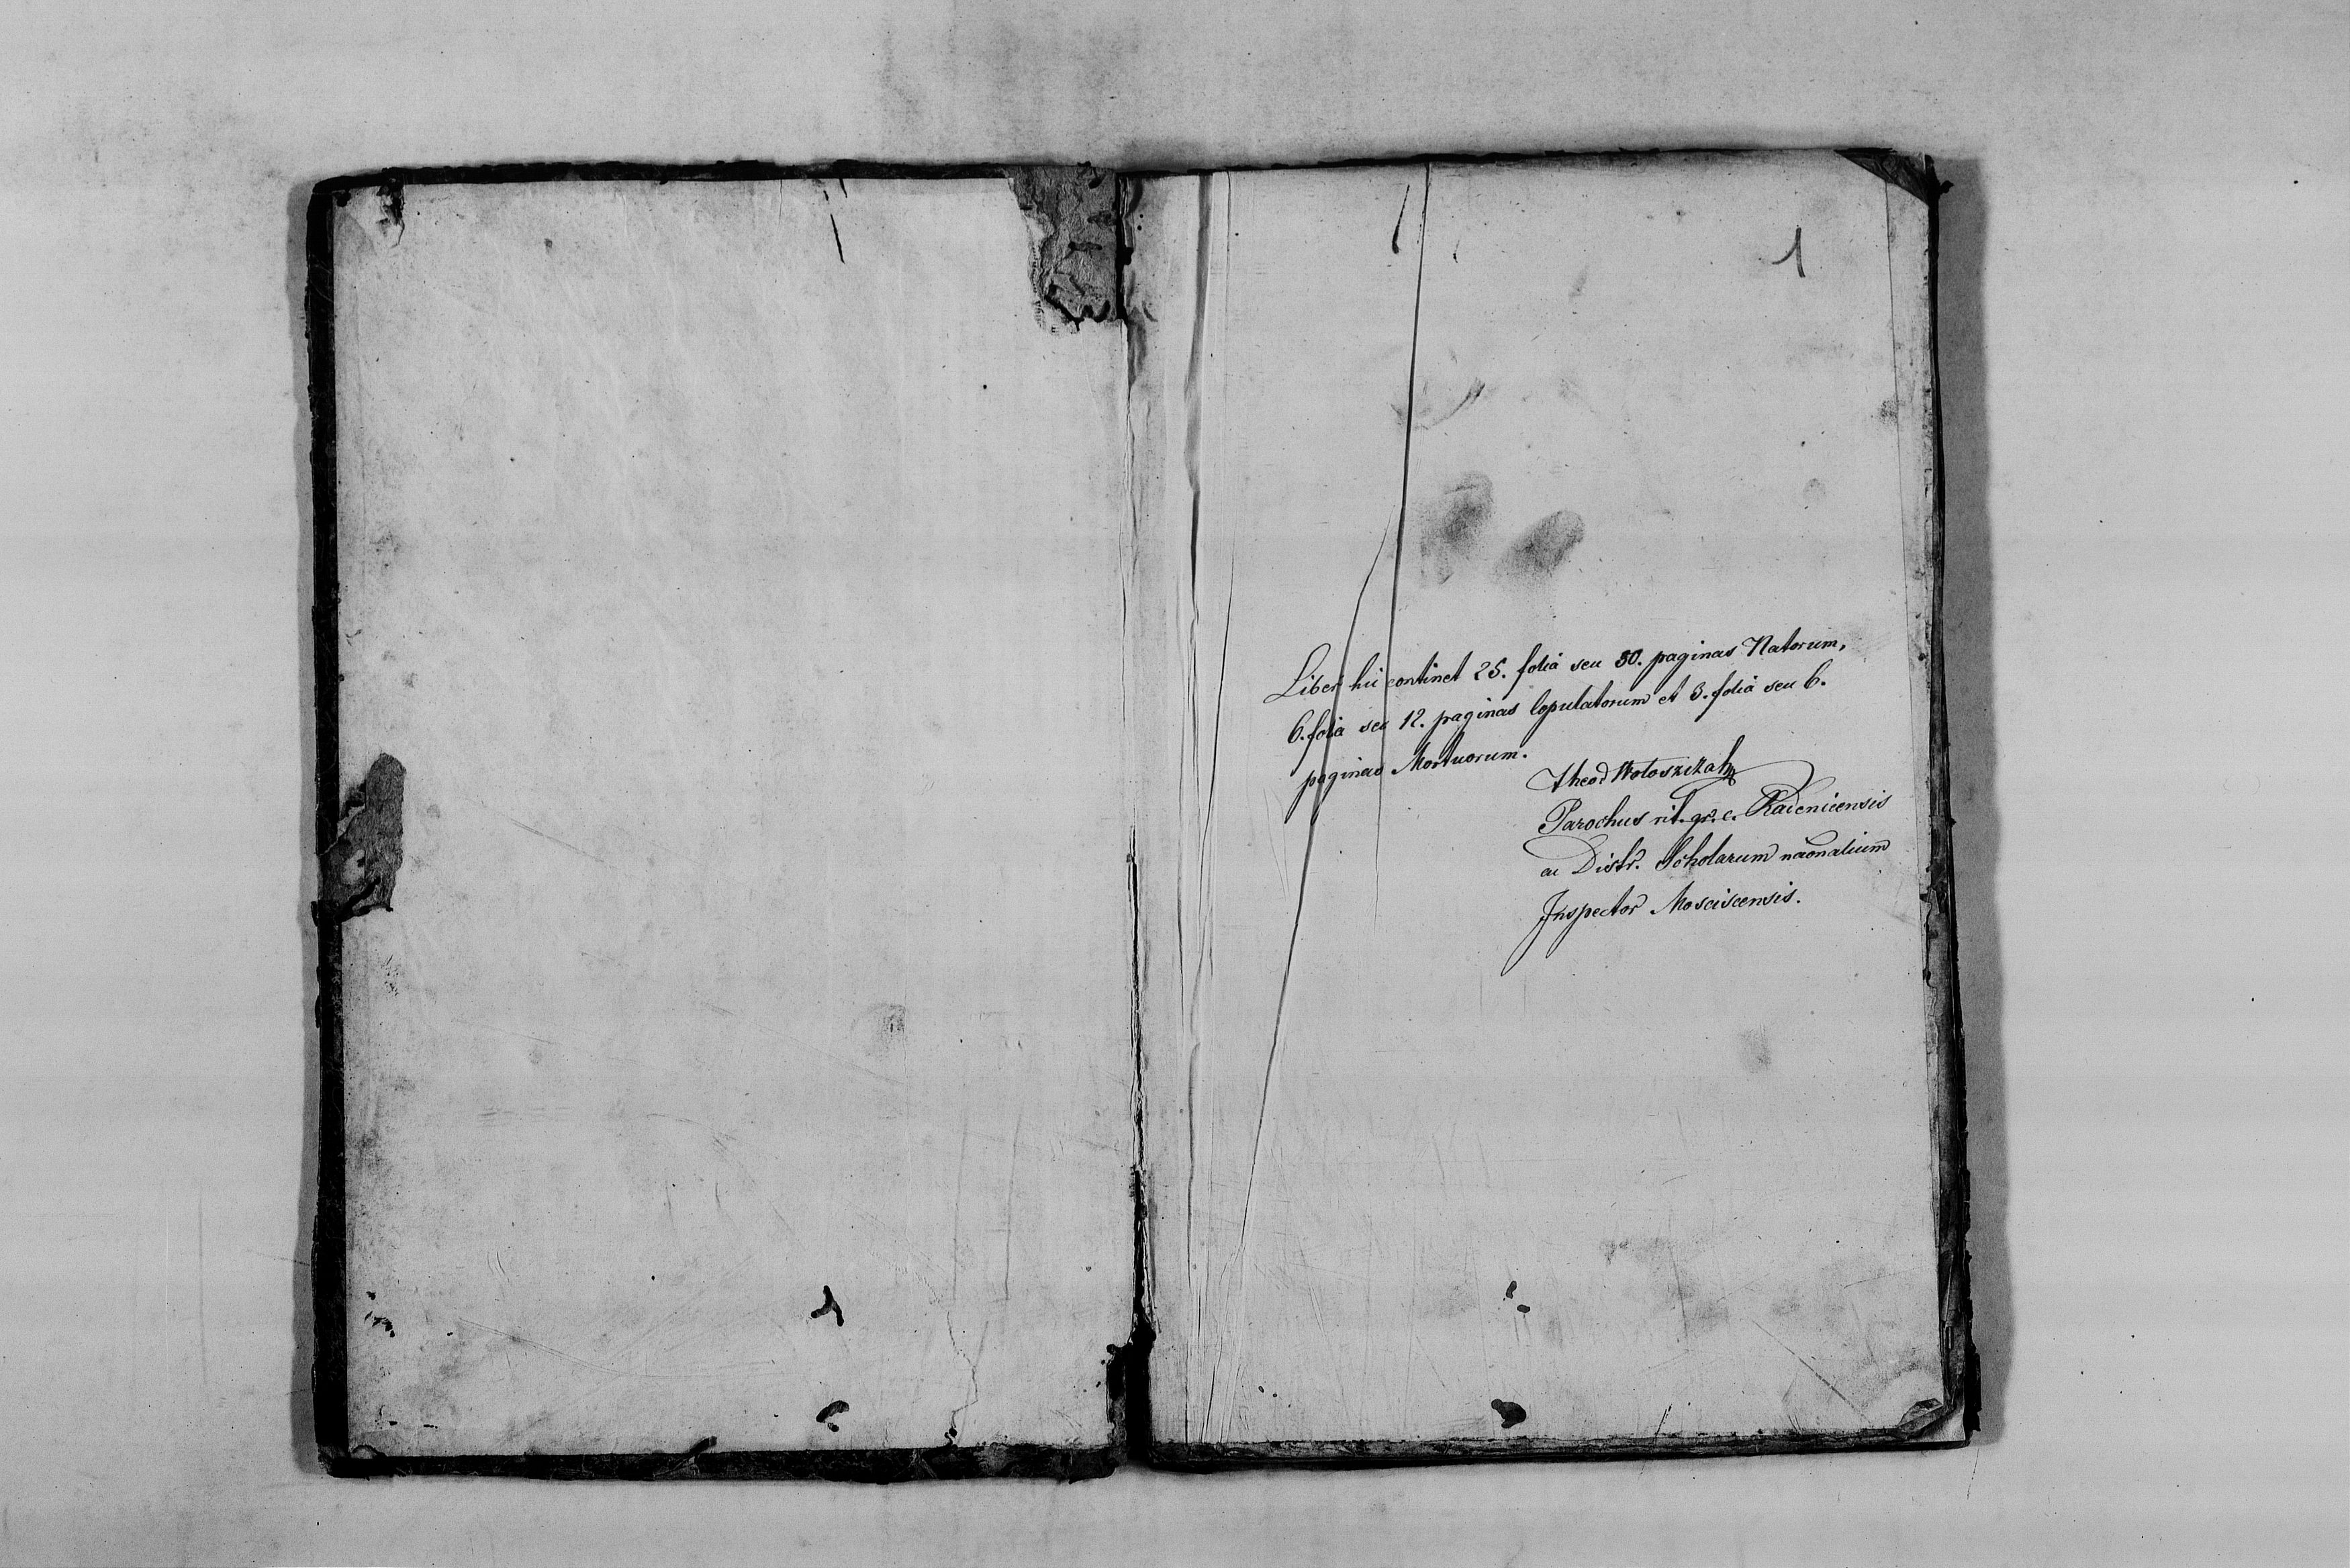 1
Liber hic continet 25. folia seu 50. paginas Natorum,
6. folia seu 12. paginas Copulatorum et 3. folia seu 6.
paginas Mortuorum.
Theod Wołoszczak
Parochus rit. gr. c. Radenicensis
ac Distr. Scholarum naõnalium
Inspector Mosciscensis.